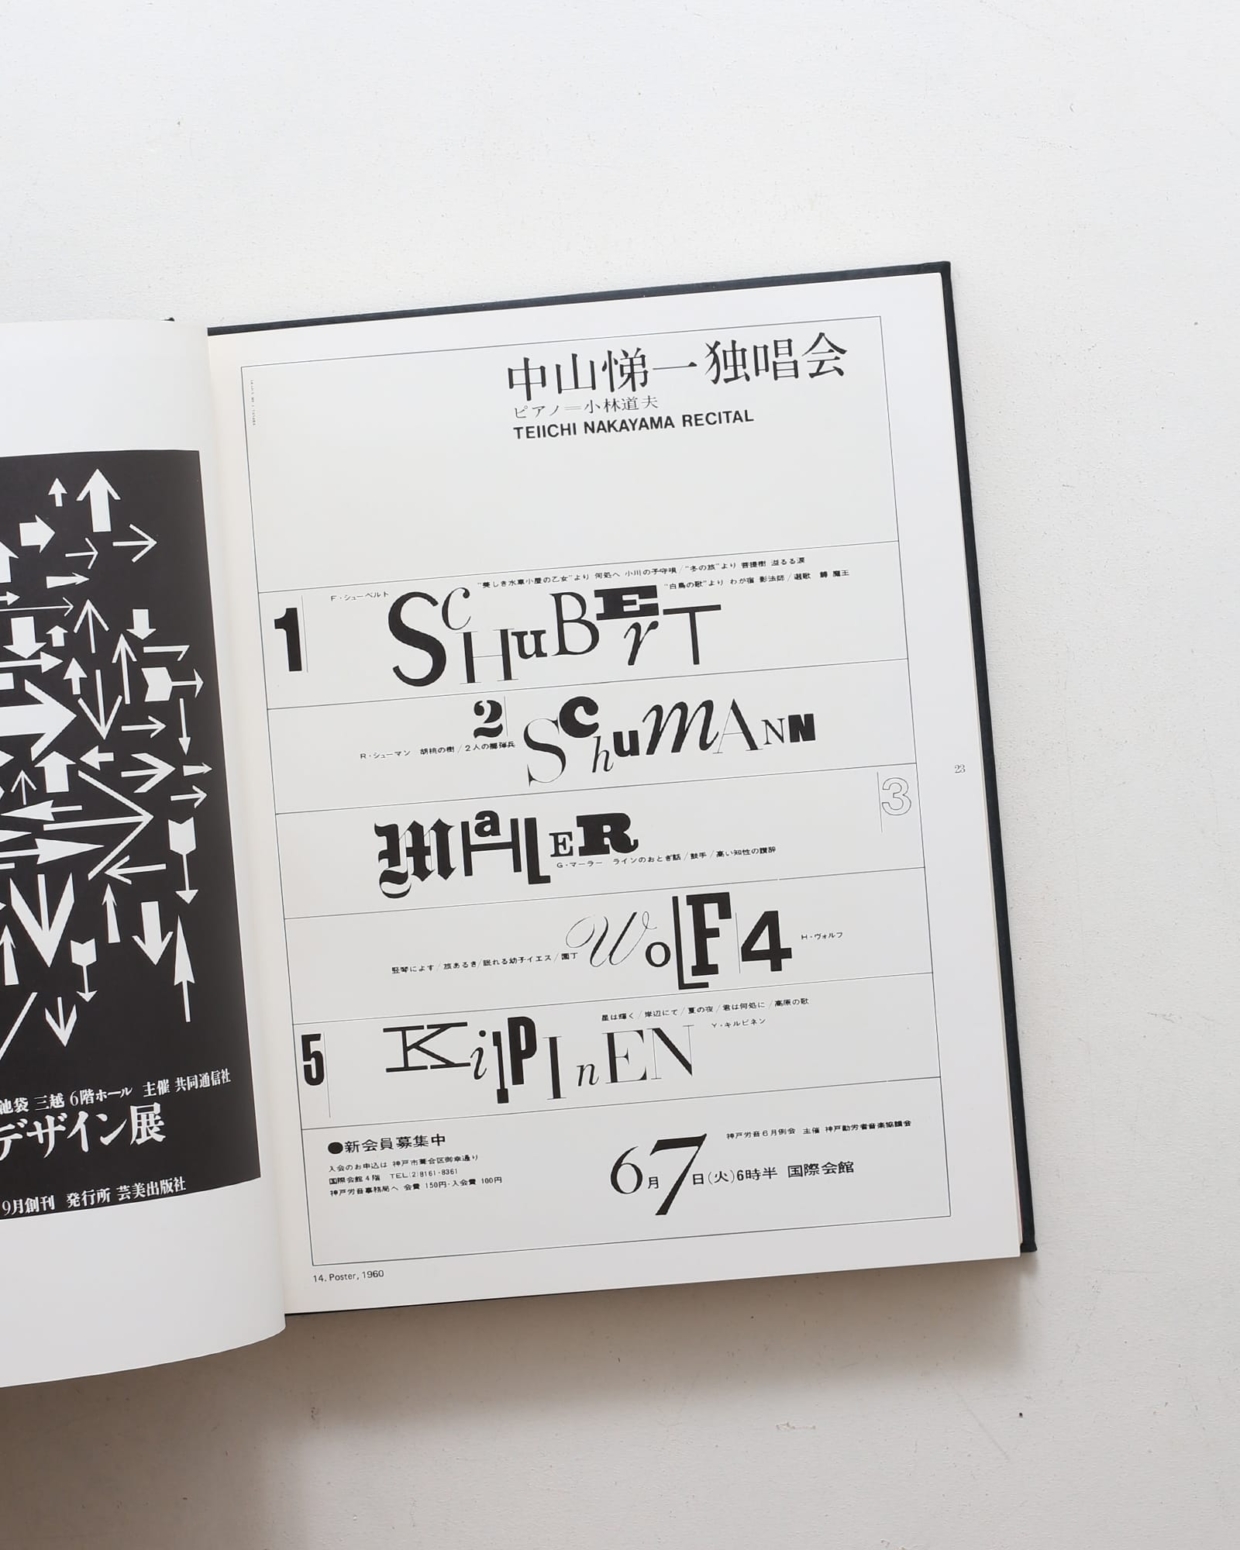 池袋 三越 6階ホール 主催 共同通信社
デザイン展
9月創刊 発行所 芸美出版社
中山悌一独唱会
ピアノ=小林道夫
TEIICHI NAKAYAMA RECITAL
"美しき水車小屋の乙女"より 何処へ 小川の子守唄/"冬の旅"より 菩提樹 溢るる涙
"白鳥の歌"より わが宿 影法師/選歌 鱒 魔王
F・シューベルト
1
SCHuBErT
2
R・シューマン 胡桃の樹/2人の擲弾兵
SchumANN
3
MaHLER
G・マーラー ラインのおとぎ話/鼓手/高い知性の讃辞
竪琴によす/旅あるき/眠れる幼子イエス/園丁
WoLF
4
H・ヴォルフ
星は輝く/岸辺にて/夏の夜/君は何処に/高原の歌
Y・キルピネン
5
KilPInEN
●新会員募集中
入会のお申込は 神戸市葺合区御幸通り
国際会館4階 TEL.(2)8161・8361
神戸労音事務局へ 会費 150円・入会費 100円
神戸労音6月例会 主催 神戸勤労者音楽協議会
6月7日(火)6時半 国際会館
14. Poster, 1960
23